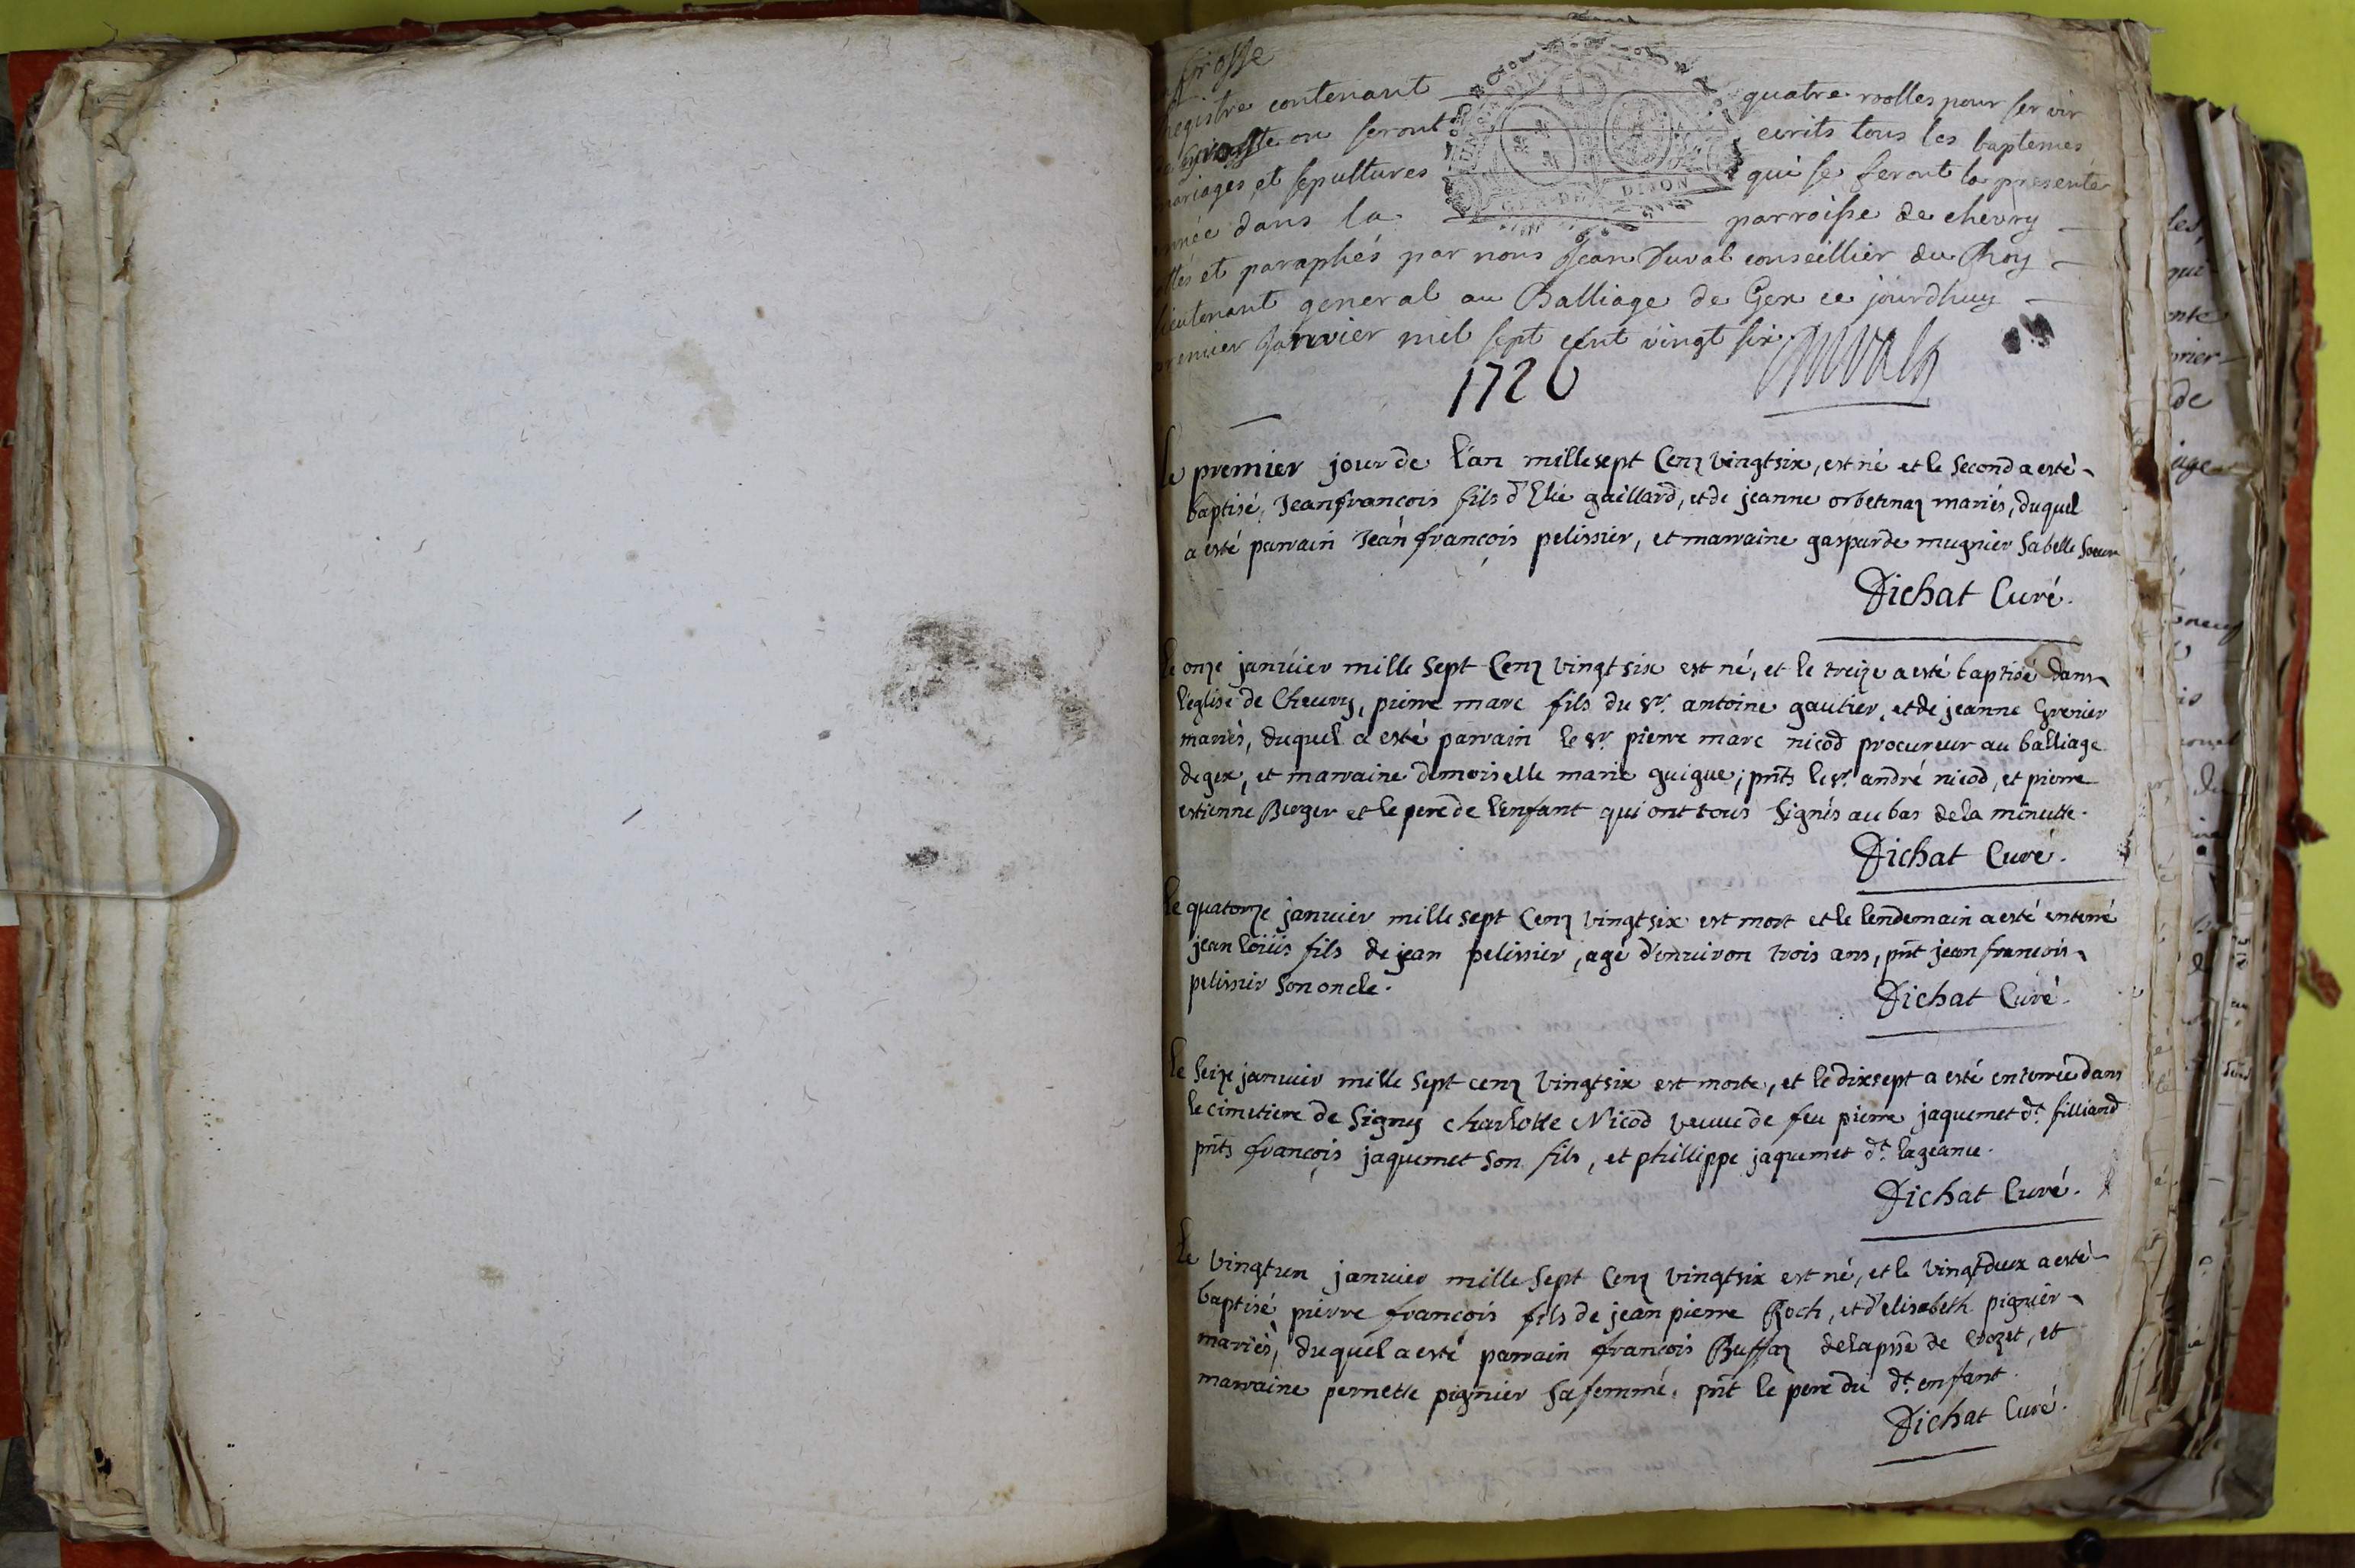 Grosse
Registre contenant quatre rolles pour servir
de grosse ou seront ecrits tous les baptemes
mariages et sepultures qui se feront la presente
année dans la parroisse de chevry
et paraphés par nous Jean Duval conseillier du Roy
lieutenant general au Balliage de Gex ce jourdhuy
premier Janvier mil sept cent vingt six
Duval
1726
DIJON
le premier jour de l'an mille sept Cenz vingtsix, est né et le Second a esté
baptisé, Jeanfrançois fils d'Elie gaillard, et de jeanne orbetinaz mariés, duquel
a esté parrain Jean françois pelissier, et marraine gasparde mugnier Sabelle Soeur
Dichat Curé.
le onze januier mille Sept Cenz vingtsix est né, et le treize a esté baptisé dans
l'eglise de Cheury, pierre marc fils du Sr. antoine gautier, et de jeanne Grenier
mariés, duquel a esté parrain le Sr. pierre marc nicod procureur au balliage
de gex, et marraine demoiselle marie guigue; pnts le Sr. andré nicod, et pierre
estienne Berger et le pere de l'Enfant qui ont tous Signés au bas de la minutte.
Dichat Curé.
le quatorze januier mille sept Cenz vingtsix est mort et le lendemain a esté enterré
jean loüis fils de jean pelissier, agé d'enuiron trois ans, pnt jean françois
pelissier Son oncle.
Dichat Curé.
le Seize januier mille Sept cenz vingtsix est morte, et le dixsept a esté enterrée dans
le cimetiere de Signy charlotte Nicod veuue de feu pierre jaquemet dt. filliand
pnts françois jaquemet Son fils, et phillippe jaquemet dt. lageance.
Dichat Curé.
le vingtun januier mille Sept Cenz vingtsix est né, et le vingtdeux a esté
baptisé pierre françois fils de jean pierre Roch, et d'elisabeth pignier
mariés, duquel a esté parrain françois Buffaz de la psse de Crozet, et
marraine pernette pignier Sa femme, pnt le pere du dt. enfant.
Dichat Curé.